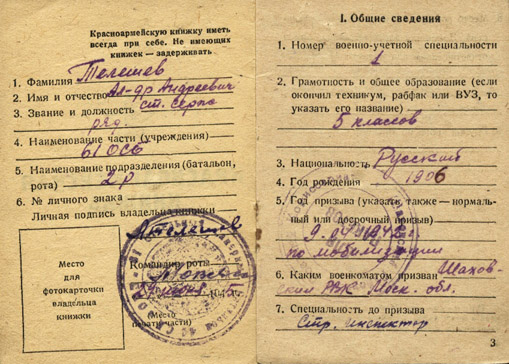 Красноармейскую книжку иметь
всегда при себе. Не имеющих
книжек — задерживать
1. Фамилия Телешев
2. Имя и отчество Ал-др Андреевич
3. Звание и должность ст. сержа
ряд.
4. Наименование части (учреждения)
61 ОСБ
5. Наименование подразделения (батальон,
рота) 2 р
6. № личного знака
Личная подпись владельца книжки
Место
для
фотокарточки
владельца
книжки
Командир роты
(Место
печати части)
I. Общие сведения
1. Номер военно-учетной специальности
1
2. Грамотность и общее образование (если
окончил техникум, рабфак или ВУЗ, то
указать его название)
5 классов
3. Национальность Русский
4. Год рождения 1906
5. Год призыва (указать также — нормаль-
ный или досрочный призыв)
1942
по мобилизации
6. Каким военкоматом призван Шахов-
ский РВК Моск. обл.
7. Специальность до призыва
Стр. инспектор
3